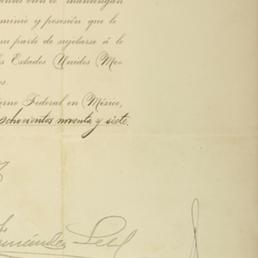 mantengan
minio y posesión que le
parte de sujetarse á lo
Estados Unidos Me-
es.
erno Federal en México,
ochocientos noventa y siete.